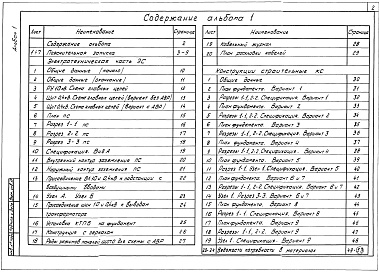 Содержание альбома 1
2
Альбом 1
Лист Наименование Страница
Содержание альбома 2
1÷7 Пояснительная записка 3-9
Электротехническая часть ЭС
1 Общие данные (начало) 10
2 Общие данные (окончание) 11
3 РУ 10 кВ. Схема главных цепей 12
4 Щит 0,4 кВ. Схема главных цепей (вариант без АВР) 13
5 Щит 0,4 кВ. Схема главных цепей (вариант с АВР) 14
6 План ПС 15
7 Разрез 1-1 ПС 16
8 Разрез 2-2 ПС 17
9 Разрез 3-3 ПС 18
10 Спецификация. Вид А 19
11 Внутренний контур заземления ПС 20
12 Наружный контур заземления ПС 21
13 Присоединение ВЛ 10 и 0,4 кВ к подстанции с 22
воздушными вводами
14 Узел А. Узел Б 23
15 Присоединение шин 10 и 0,4 кВ к выводам 24
трансформатора
16 Установка КТПП на фундамент 25
17 Конструкция для зазем. 26
18 Ряды зажимов 27
Лист Наименование Страница
19 Кабельный журнал 28
20 План раскладки кабелей 29
Конструкции строительные КС
1 Общие данные 30
2 План фундамента. Вариант 1 31
3 Разрезы 1-1, 2-2. Спецификация. Вариант 1 32
4 План фундамента. Вариант 2 33
5 Разрезы 1-1, 2-2. Спецификация. Вариант 2 34
6 План фундамента. Вариант 3 35
7 Разрезы 1-1, 2-2. Спецификация. Вариант 3 36
8 План фундамента. Вариант 4 37
9 Разрезы 1-1, 2-2. Спецификация. Вариант 4 38
10 План фундамента. Вариант 5 39
11 Разрезы 1-1, 2-2. Спецификация. Вариант 5 40
12 План фундамента. Варианты 6 и 7 41
13 Разрезы 1-1, 2-2. Спецификация. Варианты 6 и 7 42
14 Узел 1. Разрез 3-3. Варианты 6 и 7 43
15 План фундамента. Вариант 8 44
16 Разрез 1-1. Спецификация. Вариант 8 44
17 План фундамента. Вариант 9 45
18 Разрезы 1-1, 2-2. Вариант 9 46
19 Узел 1. Спецификация. Вариант 9
Ведомость потребности в материалах